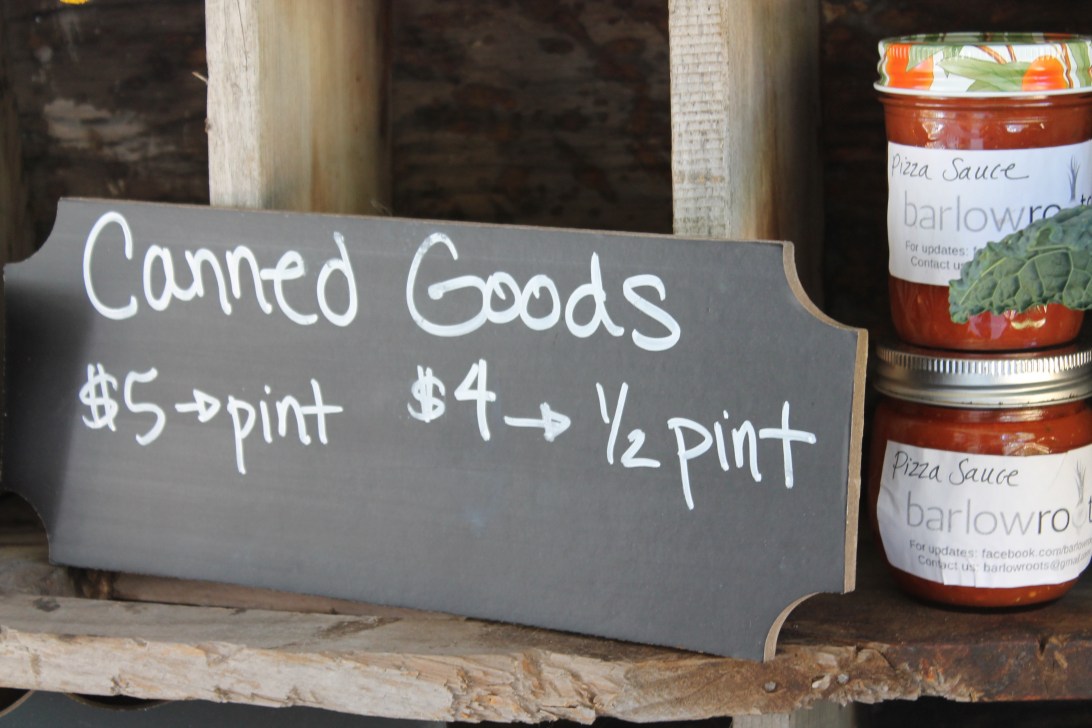 Canned Goods
$5→pint $4→½ pint
Pizza Sauce
barlowro
For updates:
Contact us
Pizza Sauce
barlowro
For updates: facebook.com/
Contact us: